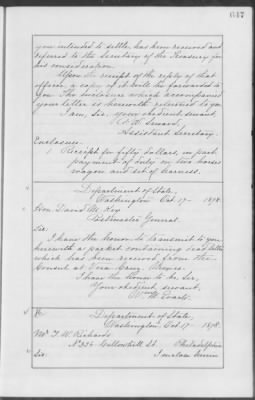 647
you intended to settle, has been received and
referred to the Secretary of the Treasury for
his consideration.
Upon the receipt of the reply of that
officer, a copy of it will be forwarded to
you. The enclosure which accompanied
your letter is herewith returned to you.
I am, Sir, your obedient servant,
F. W. Seward,
Assistant Secretary.
Enclosure:
Receipt for fifty dollars, in part
payment of duty on two horse
wagon and set of harness.
Department of State,
Washington, Oct. 17 - 1878.
Hon. David M. Key
Postmaster General.
Sir:
I have the honor to transmit to you
herewith a packet containing dead letters
which has been received from the
Consul at Vera Cruz, Mexico.
I have the honor to be, Sir,
Your obedient servant,
Wm. M. Evarts.
Department of State,
Washington, Oct. 17 - 1878.
Mr. T. W. Richards
No. 336 Willowhill St. Philadelphia
Sir: I enclose herein